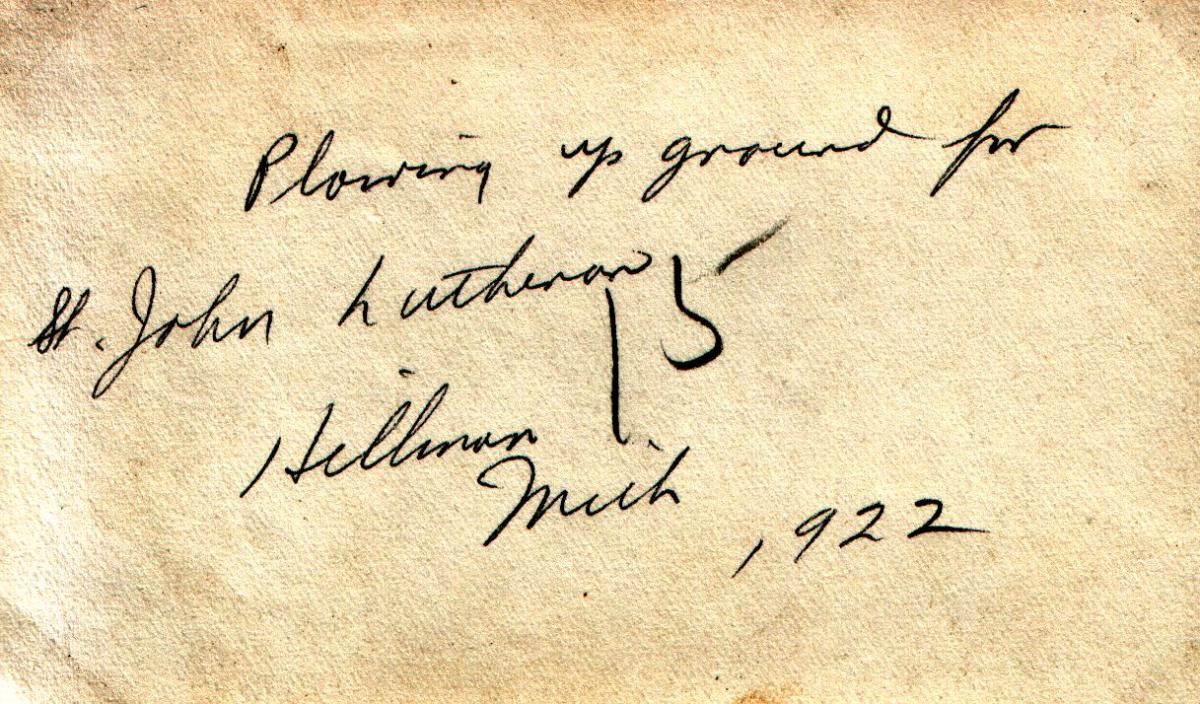 Plowing up ground for
St. John Lutheran
15
Hillman
Mich
1922